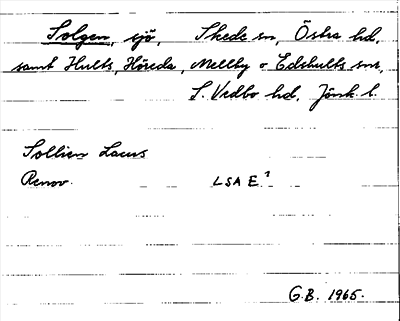 Solgen, sjö, Skede sn, Östra hd,
samt Hults, Höreda, Mellby o Edshults snr,
S. Vedbo hd, Jönk. l.
Sollien Lacus
Renov. LSA E.¹
G.B. 1965.